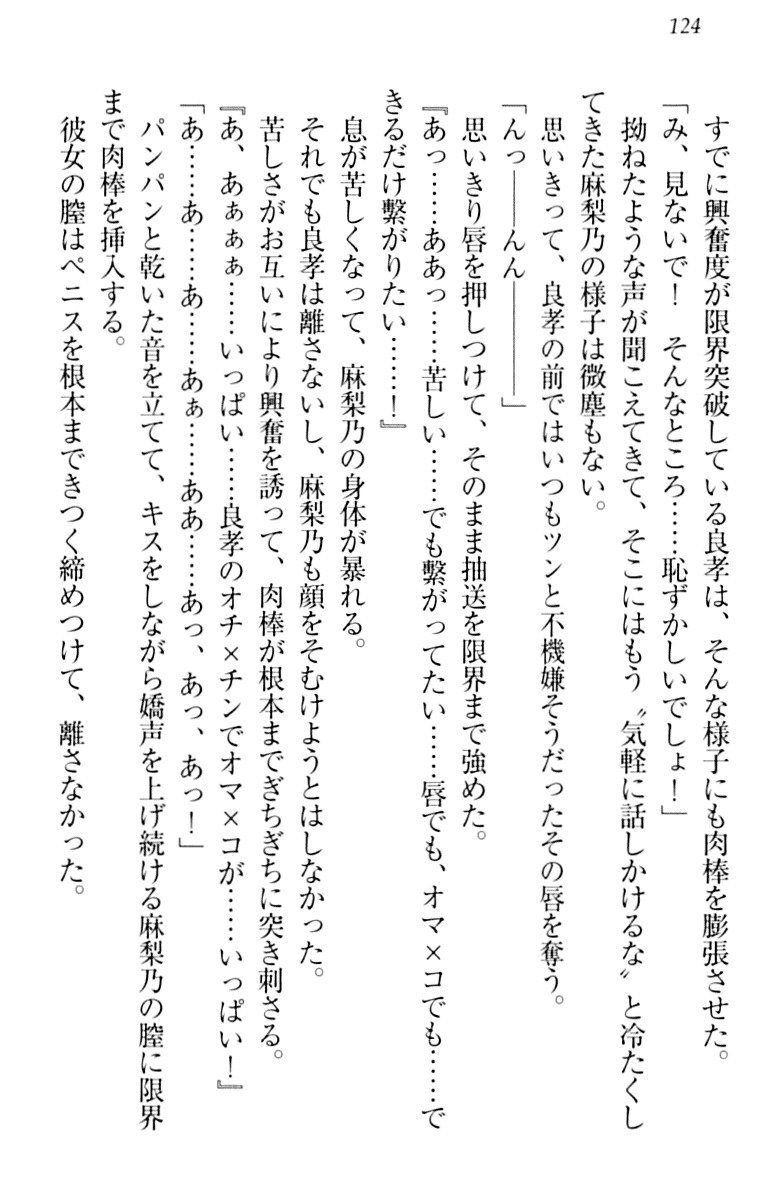 124
すでに興奮度が限界突破している良孝は、そんな様子にも肉棒を膨張させた。
「み、見ないで！　そんなところ……恥ずかしいでしょ！」
拗ねたような声が聞こえてきて、そこにはもう〝気軽に話しかけるな〟と冷たくし
てきた麻梨乃の様子は微塵もない。
思いきって、良孝の前ではいつもツンと不機嫌そうだったその唇を奪う。
「んっ――んん――――」
思いきり唇を押しつけて、そのまま抽送を限界まで強めた。
『あっ……ああっ……苦しい……でも繋がってたい……唇でも、オマ×コでも……で
きるだけ繋がりたい……！』
息が苦しくなって、麻梨乃の身体が暴れる。
それでも良孝は離さないし、麻梨乃も顔をそむけようとはしなかった。
苦しさがお互いにより興奮を誘って、肉棒が根本までぎちぎちに突き刺さる。
『あ、あぁぁぁ……いっぱい……良孝のオチ×チンでオマ×コが……いっぱい！』
「あ……あ……あ……あぁ……ああ……あっ、あっ、あっ！」
パンパンと乾いた音を立てて、キスをしながら嬌声を上げ続ける麻梨乃の膣に限界
まで肉棒を挿入する。
彼女の膣はペニスを根本まできつく締めつけて、離さなかった。